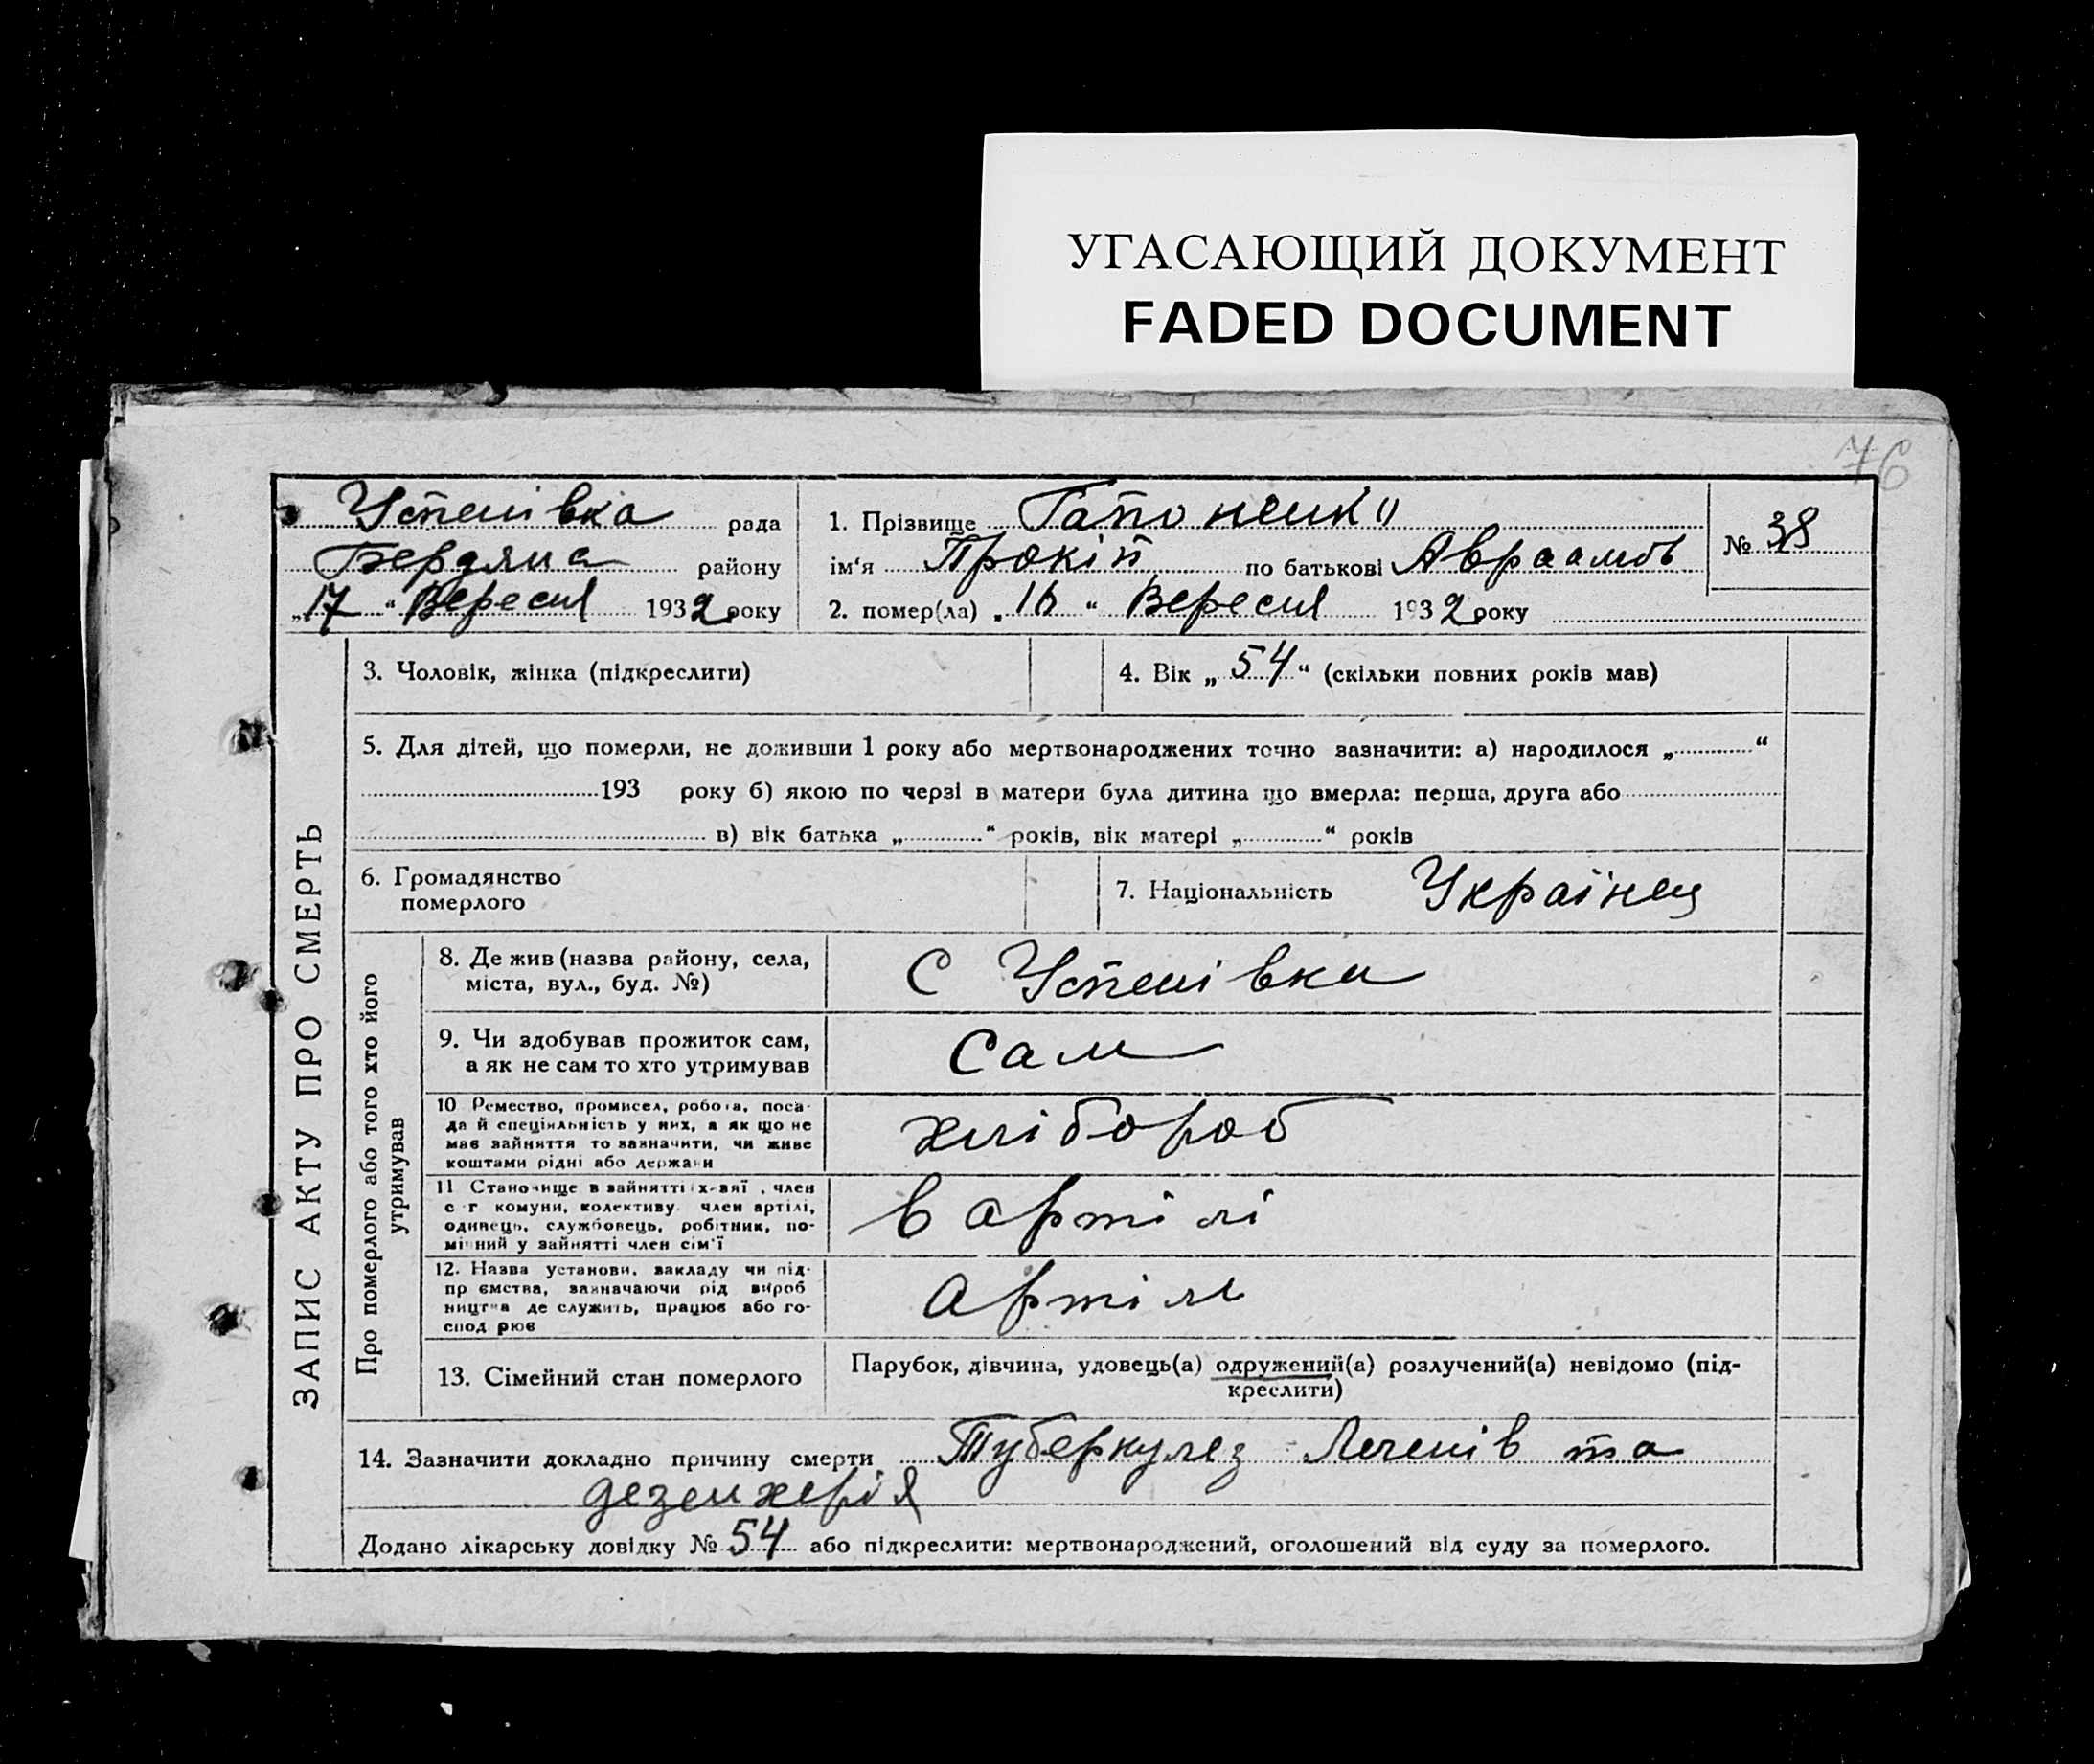 УГАСАЮЩИЙ ДОКУМЕНТ
FADED DOCUMENT
76
Успенівка рада
Бердянс району
„17“ Вересня 1932 року
1. Прізвище Гапоненко
ім‘я Прокіп по батькові Авраамов
№ 38
2. помер(ла) „16“ Вересня 1932 року
ЗАПИС АКТУ ПРО СМЕРТЬ
3. Чоловік, жінка (підкреслити)
4. Вік „54“ (скільки повних років мав)
5. Для дітей, що померли, не доживши 1 року або мертвонароджених точно зазначити: а) народилося „ “
193 року б) якою по черзі в матери була дитина що вмерла: перша, друга або
в) вік батька „ “ років, вік матері „ “ років
6. Громадянство
померлого
7. Національність Українец
Про померлого або того хто його
утримував
8. Де жив (назва району, села,
міста, вул., буд. №)
С Успенівка
9. Чи здобував прожиток сам,
а як не сам то хто утримував
Сам
10 Ремество, промисел, робота, поса-
да й спеціяльність у них, а як що не
має зайняття то зазначити, чи живе
коштами рідні або держави
хлібороб
11 Становище в зайнятті член
с г комуни, колективу член артілі,
одинець, службовець, робітник, по-
мічний у зайнятті член сім'ї
в артілі
12. Назва установи, закладу чи під-
пр ємства, зазначаючи рід вироб
ництва де служить, працює або го-
спод рює
Артіль
13. Сімейний стан померлого
Парубок, дівчина, удовець(а) одружений(а) розлучений(а) невідомо (під-
креслити)
14. Зазначити докладно причину смерти Туберкулез Легенів та
дезенхерія
Додано лікарську довідку № 54 або підкреслити: мертвонароджений, оголошений від суду за померлого.